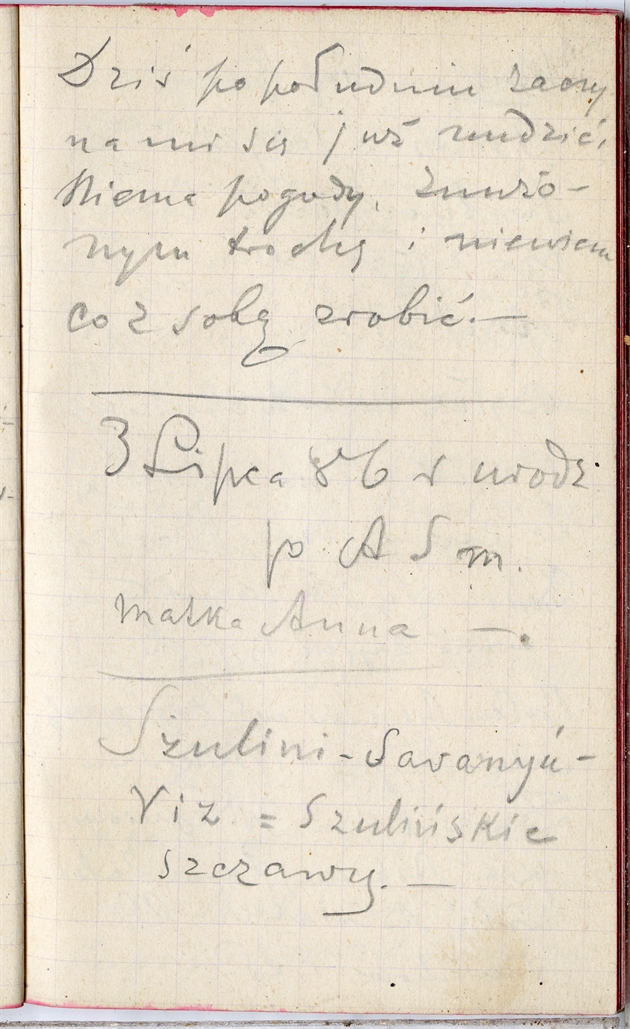 Dziś popołudniu zaczy
na mi się już nudzić.
Niema pogody, znużo-
nym trochę i niewiem
co z sobą zrobić.—
3 Lipca 86 r urodz
po A S m.
Matka Anna —.
Szulini-Savanyú-
Viz = Szulińskie
szczawy.—